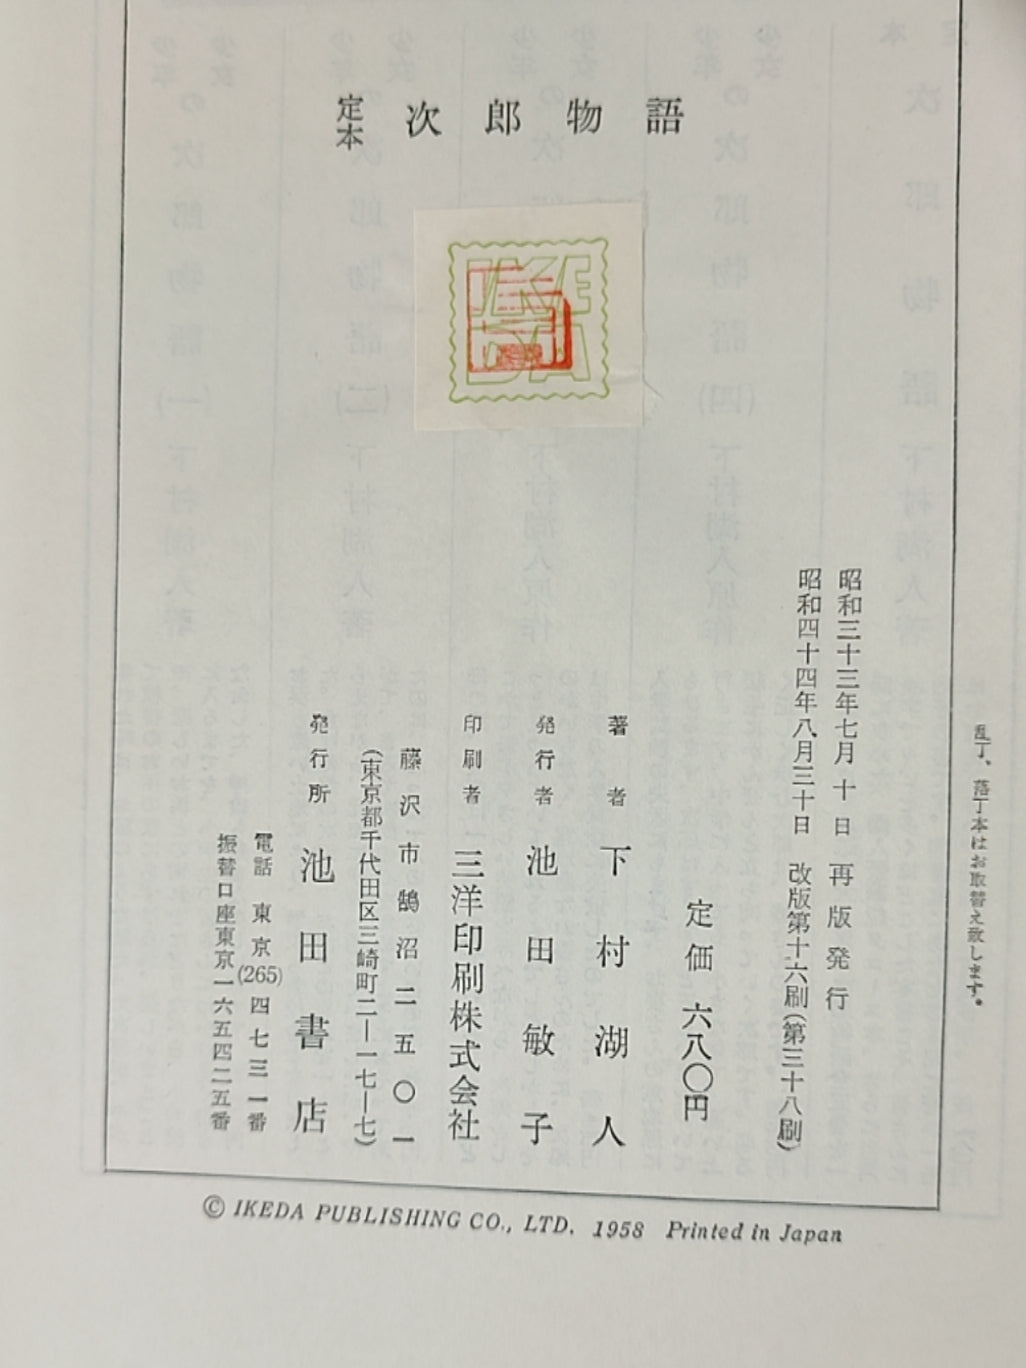 定本 次郎物語
IKEDA
昭和三十三年七月十日 再版発行
昭和四十四年八月三十日 改版第十六刷(第三十八刷)
定価 六八〇円
著者 下村湖人
発行者 池田敏子
印刷者 三洋印刷株式会社
藤沢市鵠沼二五〇一
(東京都千代田区三崎町二―一七―七)
発行所 池田書店
電話 東京(265)四七三一番
振替口座東京一六五四二五番
乱丁、落丁本はお取替え致します。
© IKEDA PUBLISHING CO., LTD. 1958 Printed in Japan